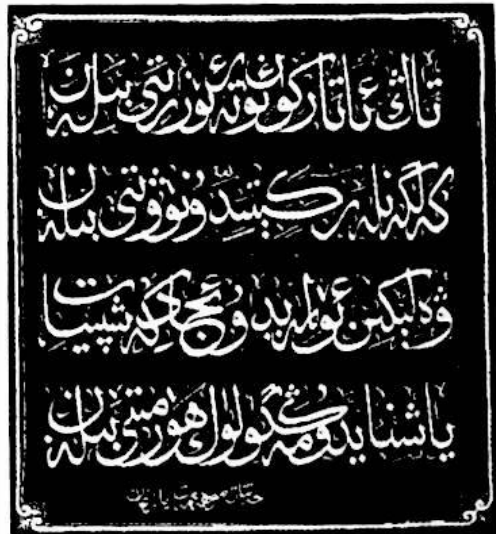 تاڭ ئاتار كۈن ئۆتەر ئۆز رىتمى بىلەن
كەلگەنلەر كېتىدۇ نۆۋىتى بىلەن
ۋە لېكىن ئۆلمەيدۇ ئىجاد كەشپىيات
ياشنايدۇ مەڭگۈلۈك ھۆرمىتى بىلەن